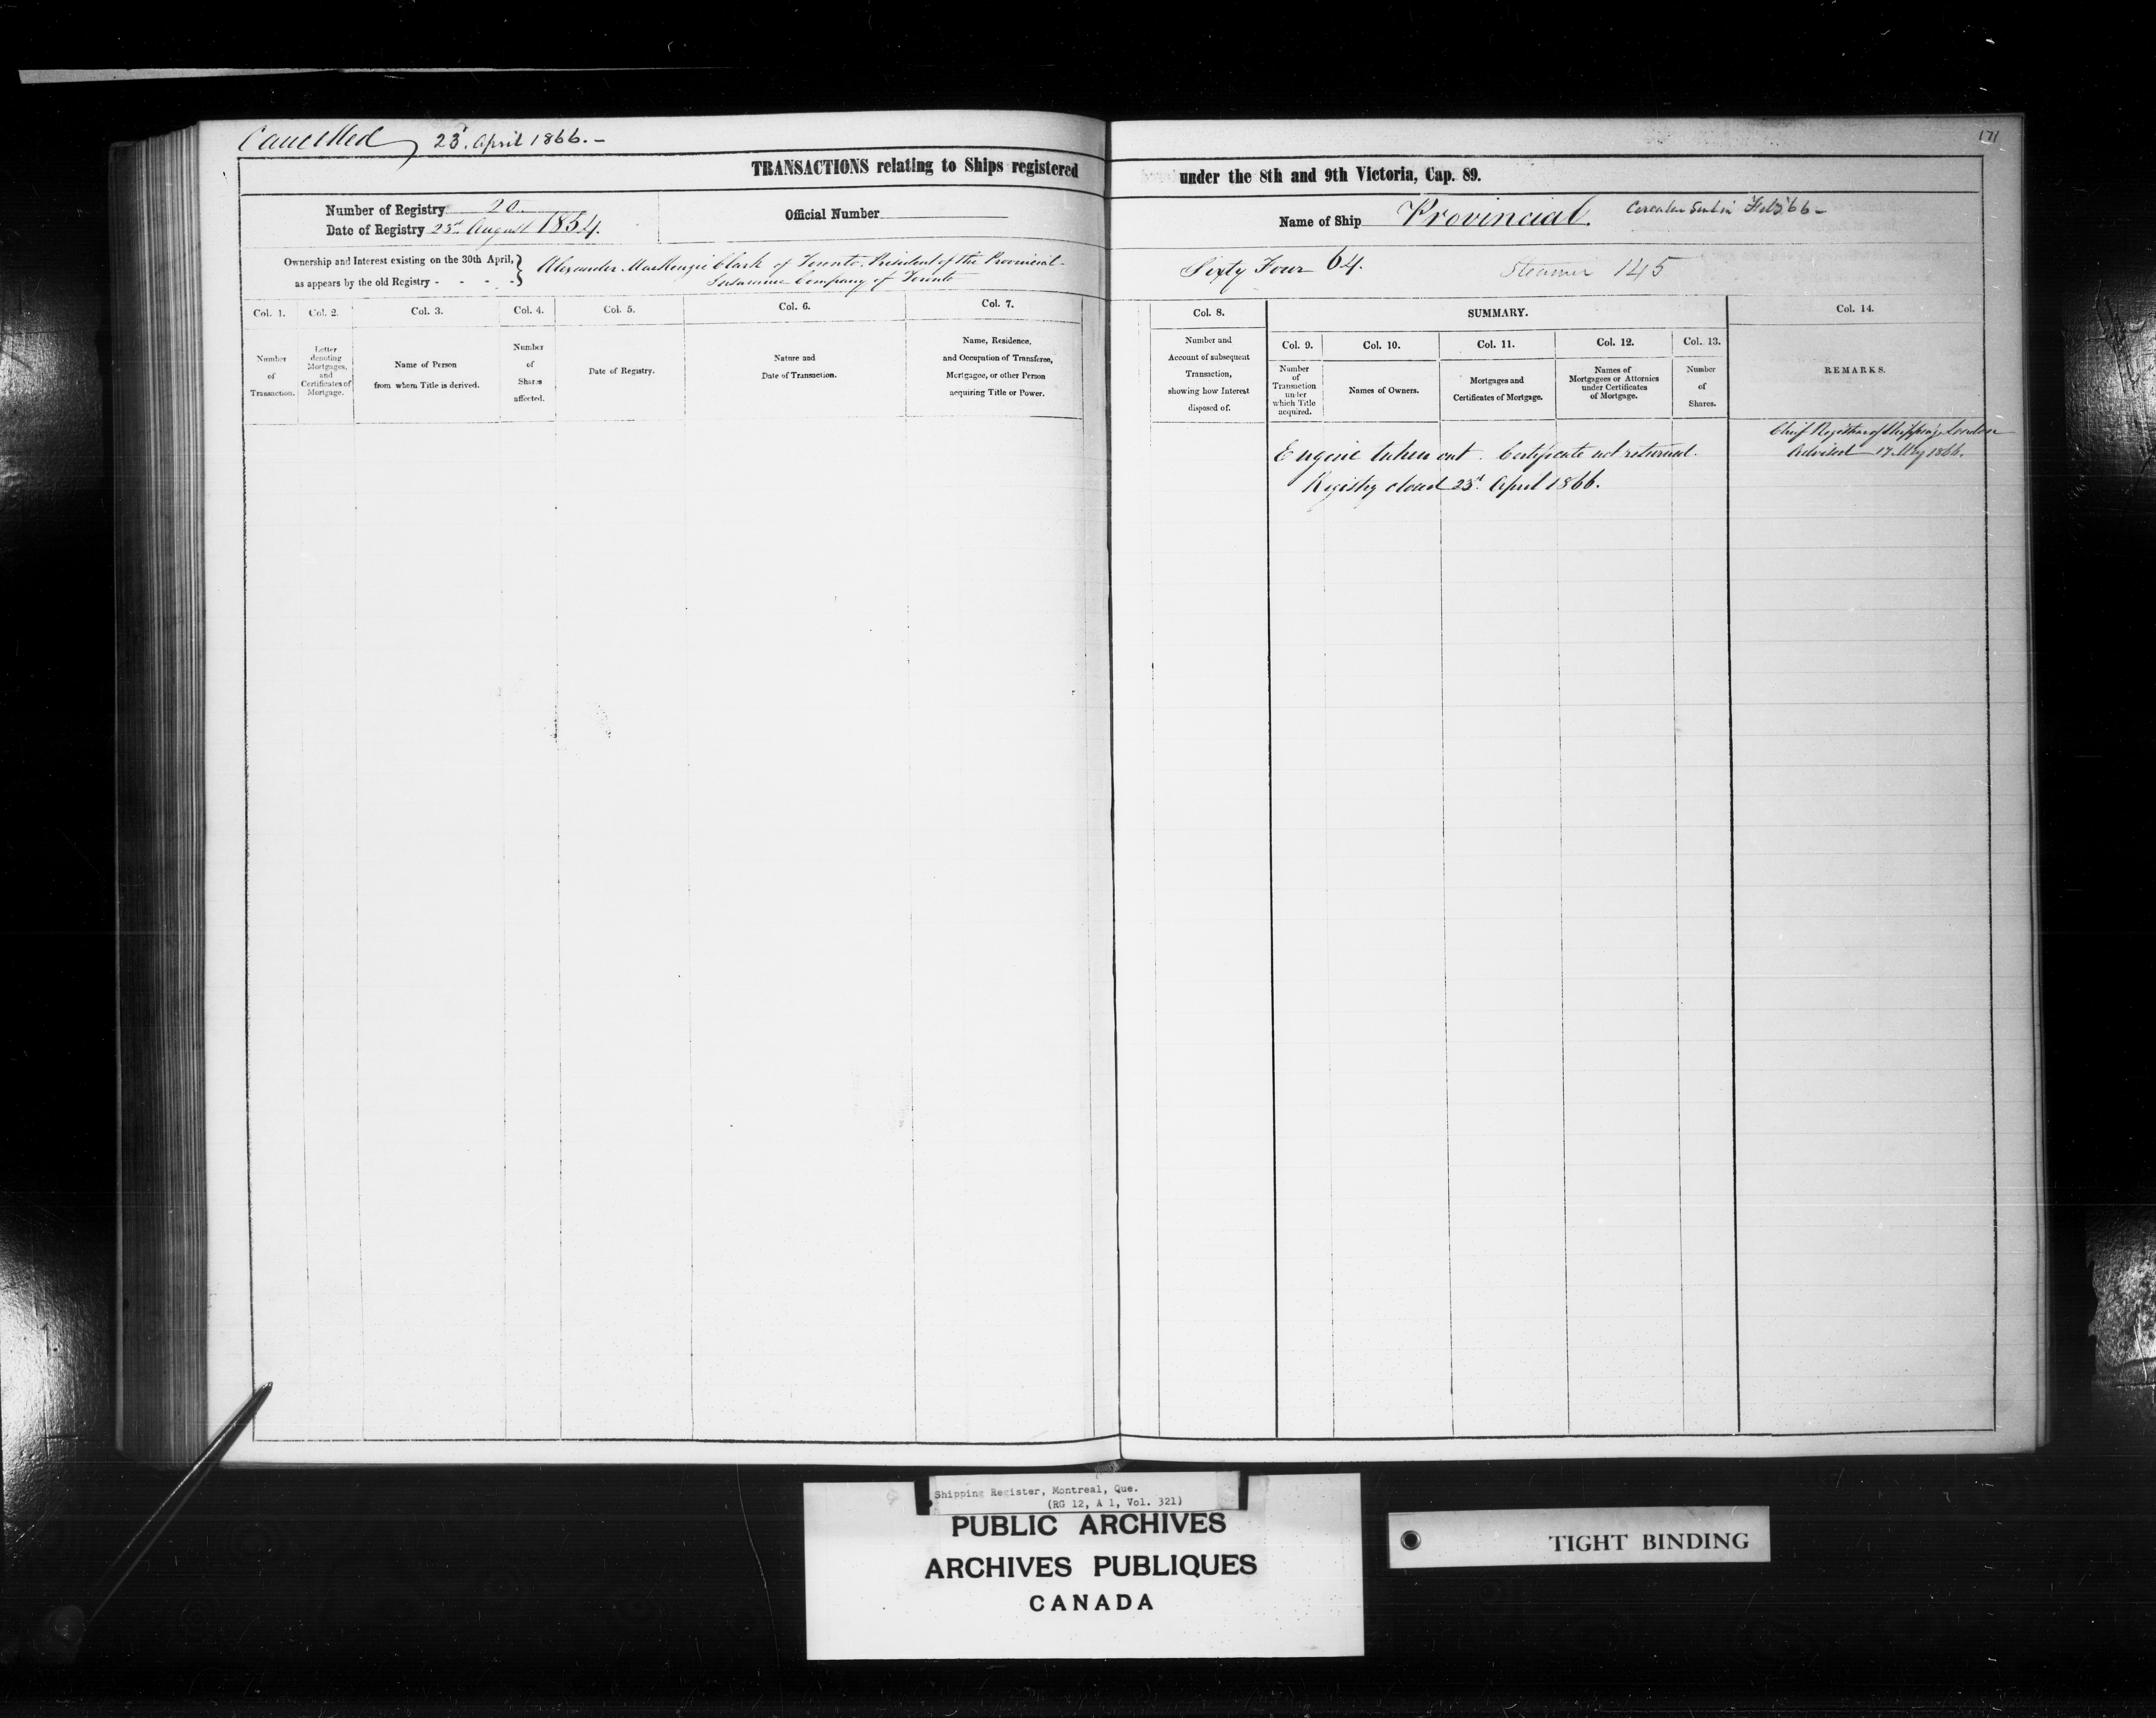 Cancelled 23d. April 1866. -
171
TRANSACTIONS relating to Ships registered under the 8th and 9th Victoria, Cap. 89.
Number of Registry 20
Date of Registry 23rd August 1854.
Official Number
Name of Ship Provincial. Circular Sent in Feby 66 -
Ownership and Interest existing on the 30th April,
as appears by the old Registry - - - -
Alexander MacKenzie Clark of Toronto. President of the Provincial
Insurance Company of Toronto
Sixty Four 64.
Steamer 145
Col. 1.
Number
of
Transaction.
Col. 2.
Letter
denoting
Mortgages,
and
Certificates of
Mortgage.
Col. 3.
Name of Person
from whom Title is derived.
Col. 4.
Number
of
Shares
affected.
Col. 5.
Date of Registry.
Col. 6.
Nature and
Date of Transaction.
Col. 7.
Name, Residence,
and Occupation of Transferee,
Mortgagee, or other Person
acquiring Title or Power.
Col. 8.
Number and
Account of subsequent
Transaction,
showing how Interest
disposed of.
SUMMARY.
Col. 9.
Number
of
Transaction
under
which Title
acquired.
Col. 10.
Names of Owners.
Col. 11.
Mortgages and
Certificates of Mortgage.
Col. 12.
Names of
Mortgagees or Attornies
under Certificates
of Mortgage.
Col. 13.
Number
of
Shares.
Col. 14.
REMARKS.
Engine taken out. Certificate not returned.
Registry closed 23d. April 1866.
Chief Registrar of Shipping London
Advised 17 May 1866.
Shipping Register, Montreal, Que.
(RG 12, A 1, Vol. 321)
PUBLIC ARCHIVES
ARCHIVES PUBLIQUES
CANADA
TIGHT BINDING